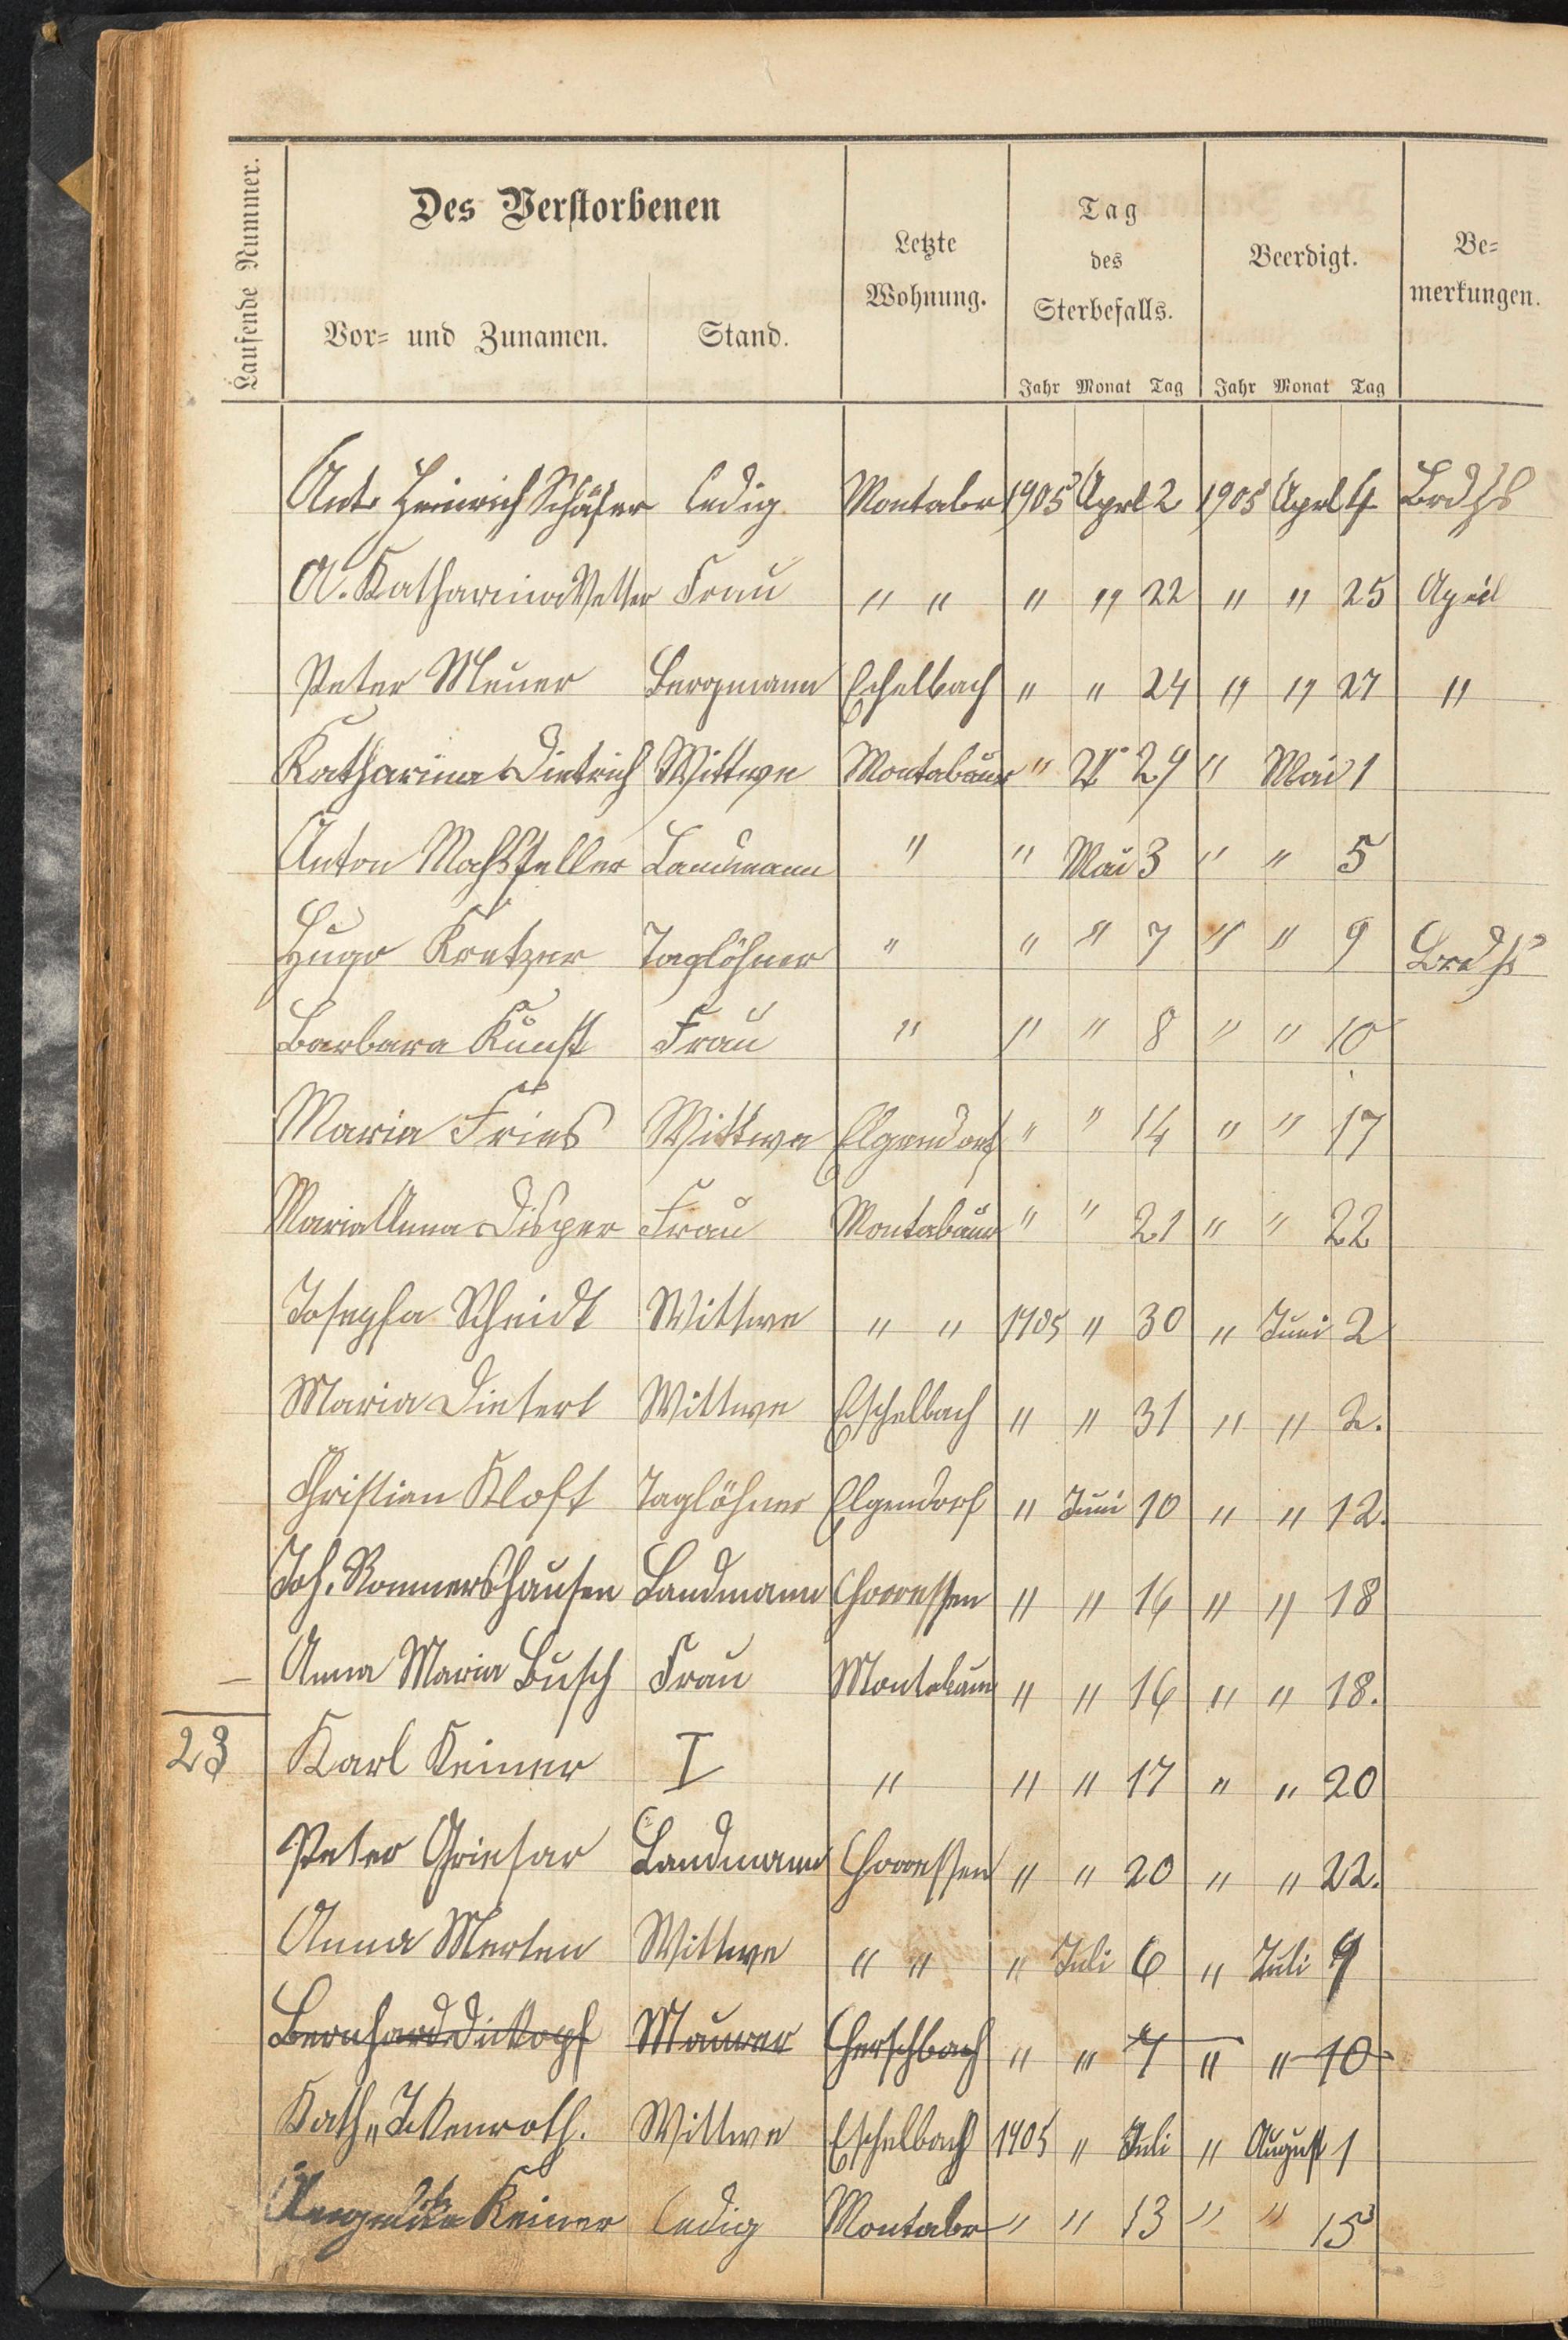 Laufende Nummer.
Des Verstorbenen
Vor- und Zunamen.
Stand.
Letzte
Wohnung.
Tag
des
Sterbefalls.
Jahr Monat Tag
Beerdigt.
Jahr Monat Tag
Be-
merkungen.
Ant. Heinrich Schäfer ledig Montabr 1905 Aprl 2 1905 Aprl 4
A. Katharina Vetter Frau " " " " 22 " " 25 April
Peter Meuer Bergmann Eschelbach " " 24 " " 27 "
Katharina Dietrich Wittwe Montabaur " 29 " Mai 1
Anton Landmann " " Mai 3 " " 5
Hugo Kretzer Taglöhner " " " 7 " " 9
Barbara Kunst Frau " " " 8 " " 10
Maria Fries Wittwe Elgendorf " " 14 " " 17
Maria Anna Disper Frau Montabaur " " 21 " " 22
Josepha Scheidt Wittwe " " 1905 " 30 " Juni 2
Maria Dietert Wittwe Eschelbach " " 31 " " 2.
Christian Kloft Taglöhner Elgendorf " Juni 10 " " 12.
Joh. Rommershausen Landmann Horressen " " 16 " " 18
Anna Maria Busch Frau Montabaur " " 16 " " 18.
23 Karl Keiner I " " " 17 " " 20
Peter Griesar Landmann Horressen " " 20 " " 22.
Anna Merten Wittwe " " " Juli 6 " Juli 9
Bernhard Dickopf Maurer Herschbach " " 7 " " 10
Kath. Ickenroth. Wittwe Eschelbach 1905 " Juli " August 1
Keiner ledig Montabr " " 13 " " 15